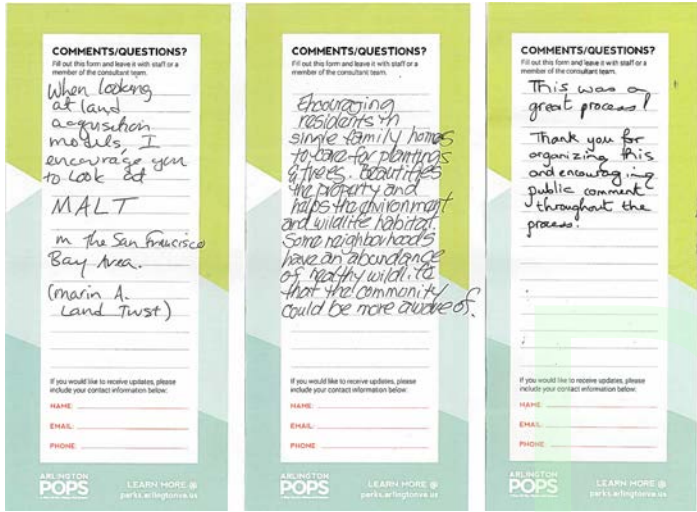 COMMENTS/QUESTIONS?
Fill out this form and leave it with staff or a
member of the consultant team.
When looking
at land
acquisition
models, I
encourage you
to look at
MALT
in the San Francisco
Bay Area.
(marin A.
Land Trust)
If you would like to receive updates, please
include your contact information below:
NAME:
EMAIL:
PHONE:
ARLINGTON
POPS
LEARN MORE @
parks.arlingtonva.us
COMMENTS/QUESTIONS?
Fill out this form and leave it with staff or a
member of the consultant team.
Encouraging
residents in
single family homes
to care for plantings
& trees. beautifies
the property and
helps the environment
and wildlife habitat.
Some neighbourhoods
have an abundance
of healthy wildlife
that the community
could be more aware of.
If you would like to receive updates, please
include your contact information below:
NAME:
EMAIL:
PHONE:
ARLINGTON
POPS
LEARN MORE @
parks.arlingtonva.us
COMMENTS/QUESTIONS?
Fill out this form and leave it with staff or a
member of the consultant team.
This was a
great process!
Thank you for
organizing this
and encouraging
public comment
throughout the
process.
If you would like to receive updates, please
include your contact information below:
NAME:
EMAIL:
PHONE:
ARLINGTON
POPS
LEARN MORE @
parks.arlingtonva.us